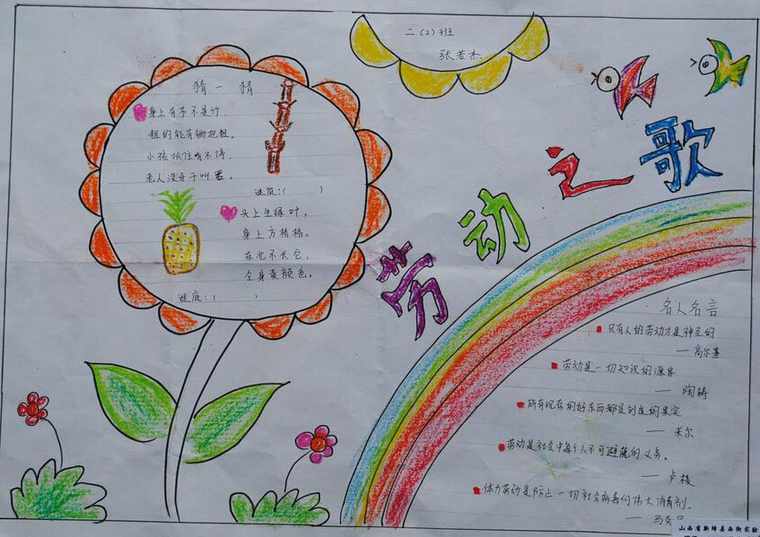 二(2)班
张若杰
劳动之歌
猜一猜
身上有节不是竹,
粗的能有锄把粗。
小孩抓住啃不停,
老人没牙干叫
谜底:( )
头上生绿叶,
身上方格格,
全身黄颜色。
谜底:( )
名人名言
只有人的劳动才是神圣的
——高尔基
劳动是一切知识的源泉
——陶铸
所有现存的好东西都是创造的果实
——米尔
劳动是社会中每个人不可避免的义务。
——卢梭
体力劳动是防止一切社会病毒的伟大消毒剂。
山西省新绛县西街实验